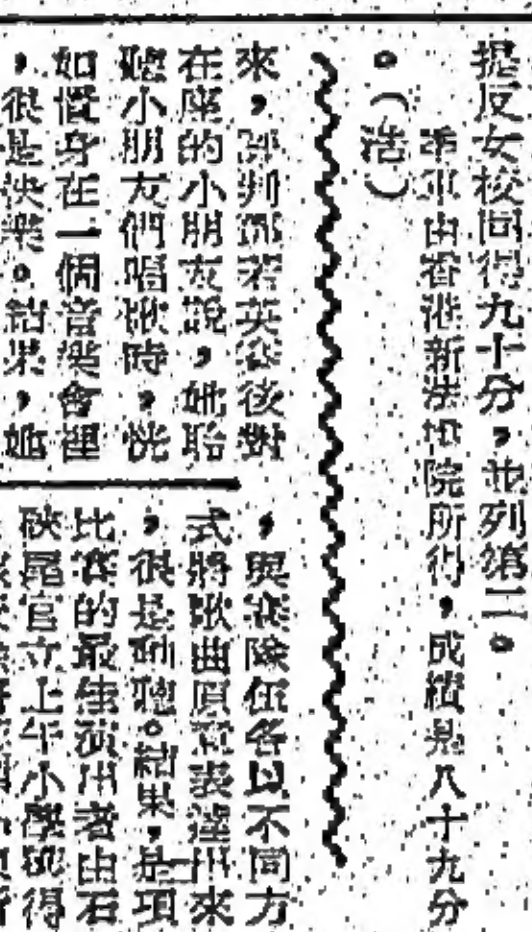 提反女校同得九十分，並列第二。
季軍由香港新法書院所得，成績是八十九分
。（浩）
來，評判
英
後對
在座的小朋友說，她聆
聽小朋友們唱歌時，恍
如置身在一個音樂會裡
，很是快樂。結果，她
，與賽隊伍各以不同方
式將歌曲原意表達出來
，很是動聽。結果，是項
比賽的最佳演出者由石
硤尾官立上午小學班得